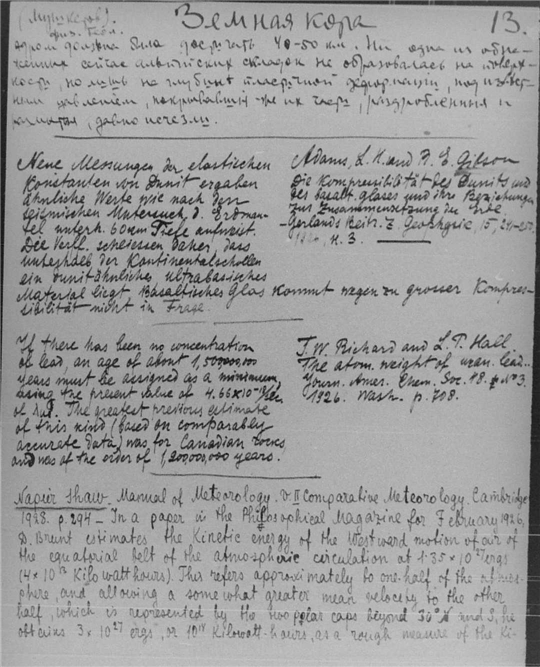 (Мушкетов) Земная кора 13.
физ. геол.
должна была достигать 40-50 км. Ни одна из обра-
сейчас альпийских складок не образовалась на поверх-
ности, но лишь на глубине пластичной деформации, под
давлением, их части, раздробленныя и
, давно исчезли.
Neue Messungen der elastischen
Konstanten von Dunit ergaben
ähnliche Werte wie nach den
seismischen Untersuch. d. Erdman-
tel unterh. 60 km Tiefe aufweist.
Die Verf. schliessen daher, dass
unterhalb der Kontinentalschollen
ein dunitähnliches ultrabasisches
Material liegt. Basaltisches Glas kommt wegen zu grosser Kompres-
sibilität nicht in Frage.
Adams, L. H. and R. E. Gibson
Die Kompressibilität des Dunits und
des basalt. glases und ihre Beziehungen
zur Zusammensetzung der Erde.
Gerlands Beitr. z. Geophysic 15,
H. 3.
If there has been no concentration
of lead, an age of about 1,500,000,000
years must be assigned as a minimum,
using the present value of 4.66×10
of . The greatest previous estimate
of this kind (based on comparably
accurate data) was for Canadian
and was of the order of 1,200,000,000 years.
T. W. Richard and L. T. Hall
The atom. weight of uran. lead..
Journ. Amer. Chem. Soc. 48. № 3.
1926. Wash. p. 708.
Napier Shaw. Manual of Meteorology. v. II Comparative Meteorology. Cambridge
1928. p. 294 — In a paper in the Philosophical Magazine for February 1926,
D. Brunt estimates the Kinetic energy of the Westward motion of air of
the equatorial belt of the atmospheric circulation at 1·35 × 10²⁷ ergs
(4×10¹³ Kilowatt hours). This refers approximately to one-half of the atmos-
phere and allowing a somewhat greater mean velocity to the other
half, which is represented by the two polar caps beyond 30° N and S, he
obtains 3 × 10²⁷ ergs, or 10¹⁴ Kilowatt-hours, as a rough measure of the Ki-